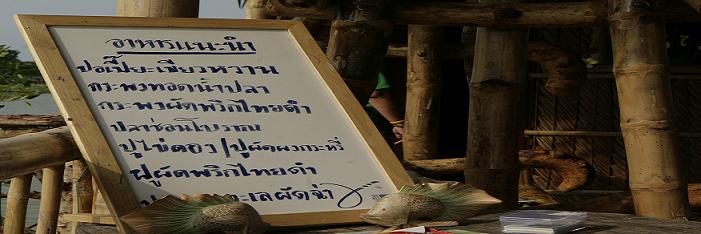 อาหารแนะนำ
ปอเปี๊ยะเขียวหวาน
กระพงทอดน้ำปลา
กระพงผัดพริกไทยดำ
ปลาช่อนโบราณ
ปูไข่ดอง/ปูผัดผงกะหรี่
ปูผัดพริกไทยดำ
ทะเลผัดฉ่า